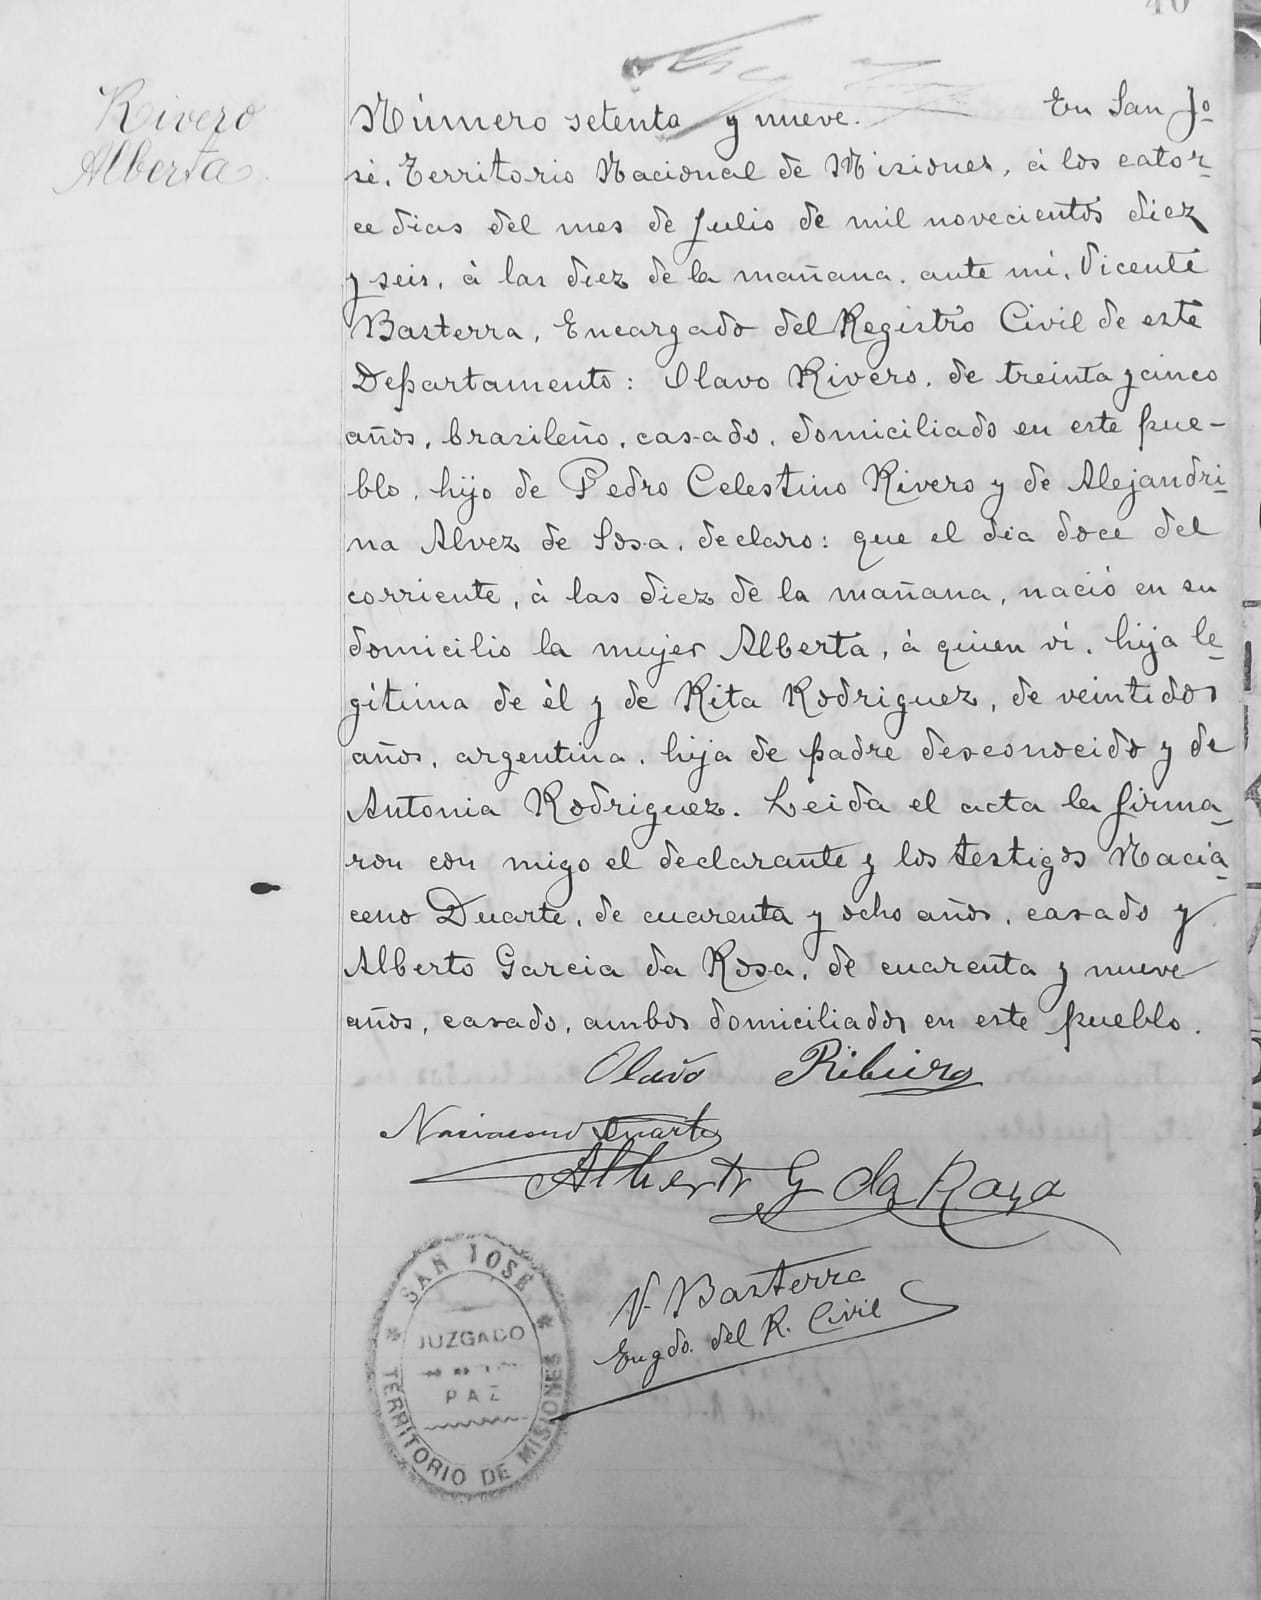 40
Rivero
Alberta
Número setenta y nueve. En San Jo
sé, Territorio Nacional de Misiones, á los cator-
ce dias del mes de Julio de mil novecientos diez
y seis, á las diez de la mañana, ante mí, Vicente
Basterra, Encargado del Registro Civil de este
Departamento: Olavo Rivero, de treinta y cinco
años, brasileño, casado, domiciliado en este pue-
blo, hijo de Pedro Celestino Rivero y de Alejandri-
na Alvez de Sosa, declaro: que el dia doce del
corriente, á las diez de la mañana, nació en su
domicilio la mujer Alberta, á quien ví, hija le-
gítima de él y de Rita Rodriguez, de veintidos
años, argentina, hija de padre desconocido y de
Antonia Rodriguez. Leida el acta la firma-
ron con migo el declarante y los testigos Nacia-
ceno Duarte, de cuarenta y ocho años, casado y
Alberto Garcia da Rosa, de cuarenta y nueve
años, casado, ambos domiciliados en este pueblo.
Olavo Ribeiro
Naciaceno Duarte
Alberto G da Roza
V. Basterra
Engdo. del R. Civil
SAN JOSÉ
JUZGADO
PAZ
TERRITORIO DE MISIONES